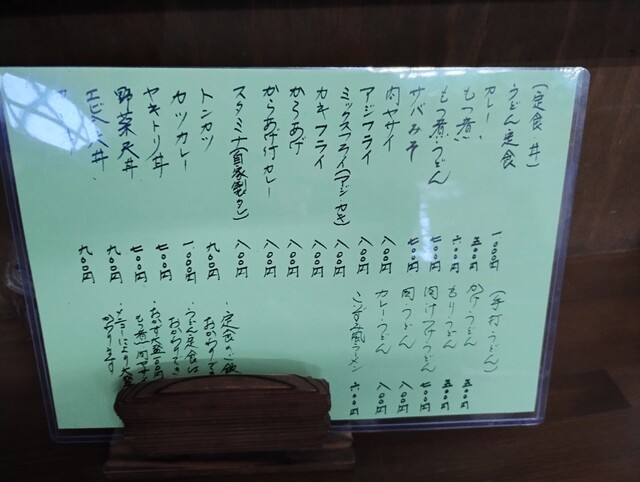 (定食 丼)
うどん定食 一〇〇〇円
カレー 五〇〇円
もつ煮 六〇〇円
もつ煮うどん 七〇〇円
サバみそ 七〇〇円
肉ヤサイ 八〇〇円
アジフライ 八〇〇円
ミックスフライ(アジ・カキ) 八〇〇円
カキフライ 八〇〇円
からあげ 八〇〇円
からあげ付カレー 八〇〇円
スタミナ(自家製タレ) 八〇〇円
トンカツ 九〇〇円
カツカレー 一〇〇〇円
ヤキトリ丼 七〇〇円
野菜天丼 九〇〇円
エビ天丼 九〇〇円
九〇〇円
(手打うどん)
かけうどん 五〇〇円
もりうどん 五〇〇円
肉けつけうどん 七〇〇円
肉うどん 八〇〇円
カレーうどん 八〇〇円
風ラーメン 六〇〇円
・定食のご飯
おかわり
・うどん定食は
おかわり
・おかず大盛一〇〇円
もつ煮
・メニューにより大盛
かわります